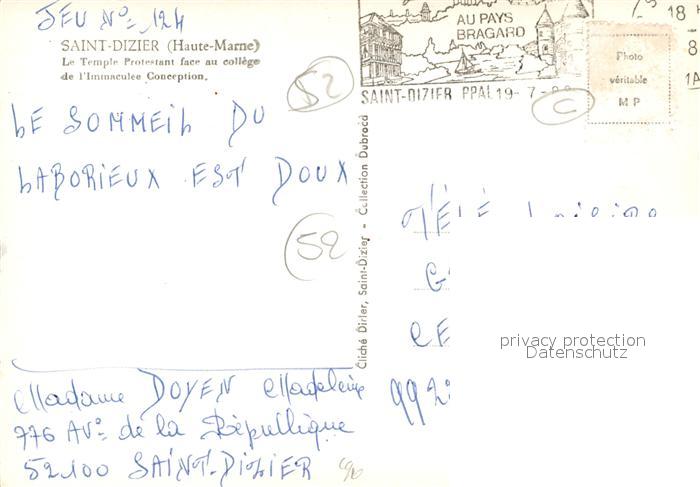 JEU N°= 124
SAINT-DIZIER (Haute-Marne)
Le Temple Protestant face au collège
de l'Immaculee Conception.
52
LE SOMMEIL DU
LABORIEUX EST DOUX
52
Madame DOYEN Madeleine
776 AV= de la République
52100 SAINT-DIZIER
Cliché Dirler, Saint-Dizier - Collection Dubrocd
AU PAYS
BRAGARD
SAINT-DIZIER PPAL 19- 7-
C
18
8
1A
Photo
véritable
M P
TÉLÉ
G
CE
992
privacy protection
Datenschutz